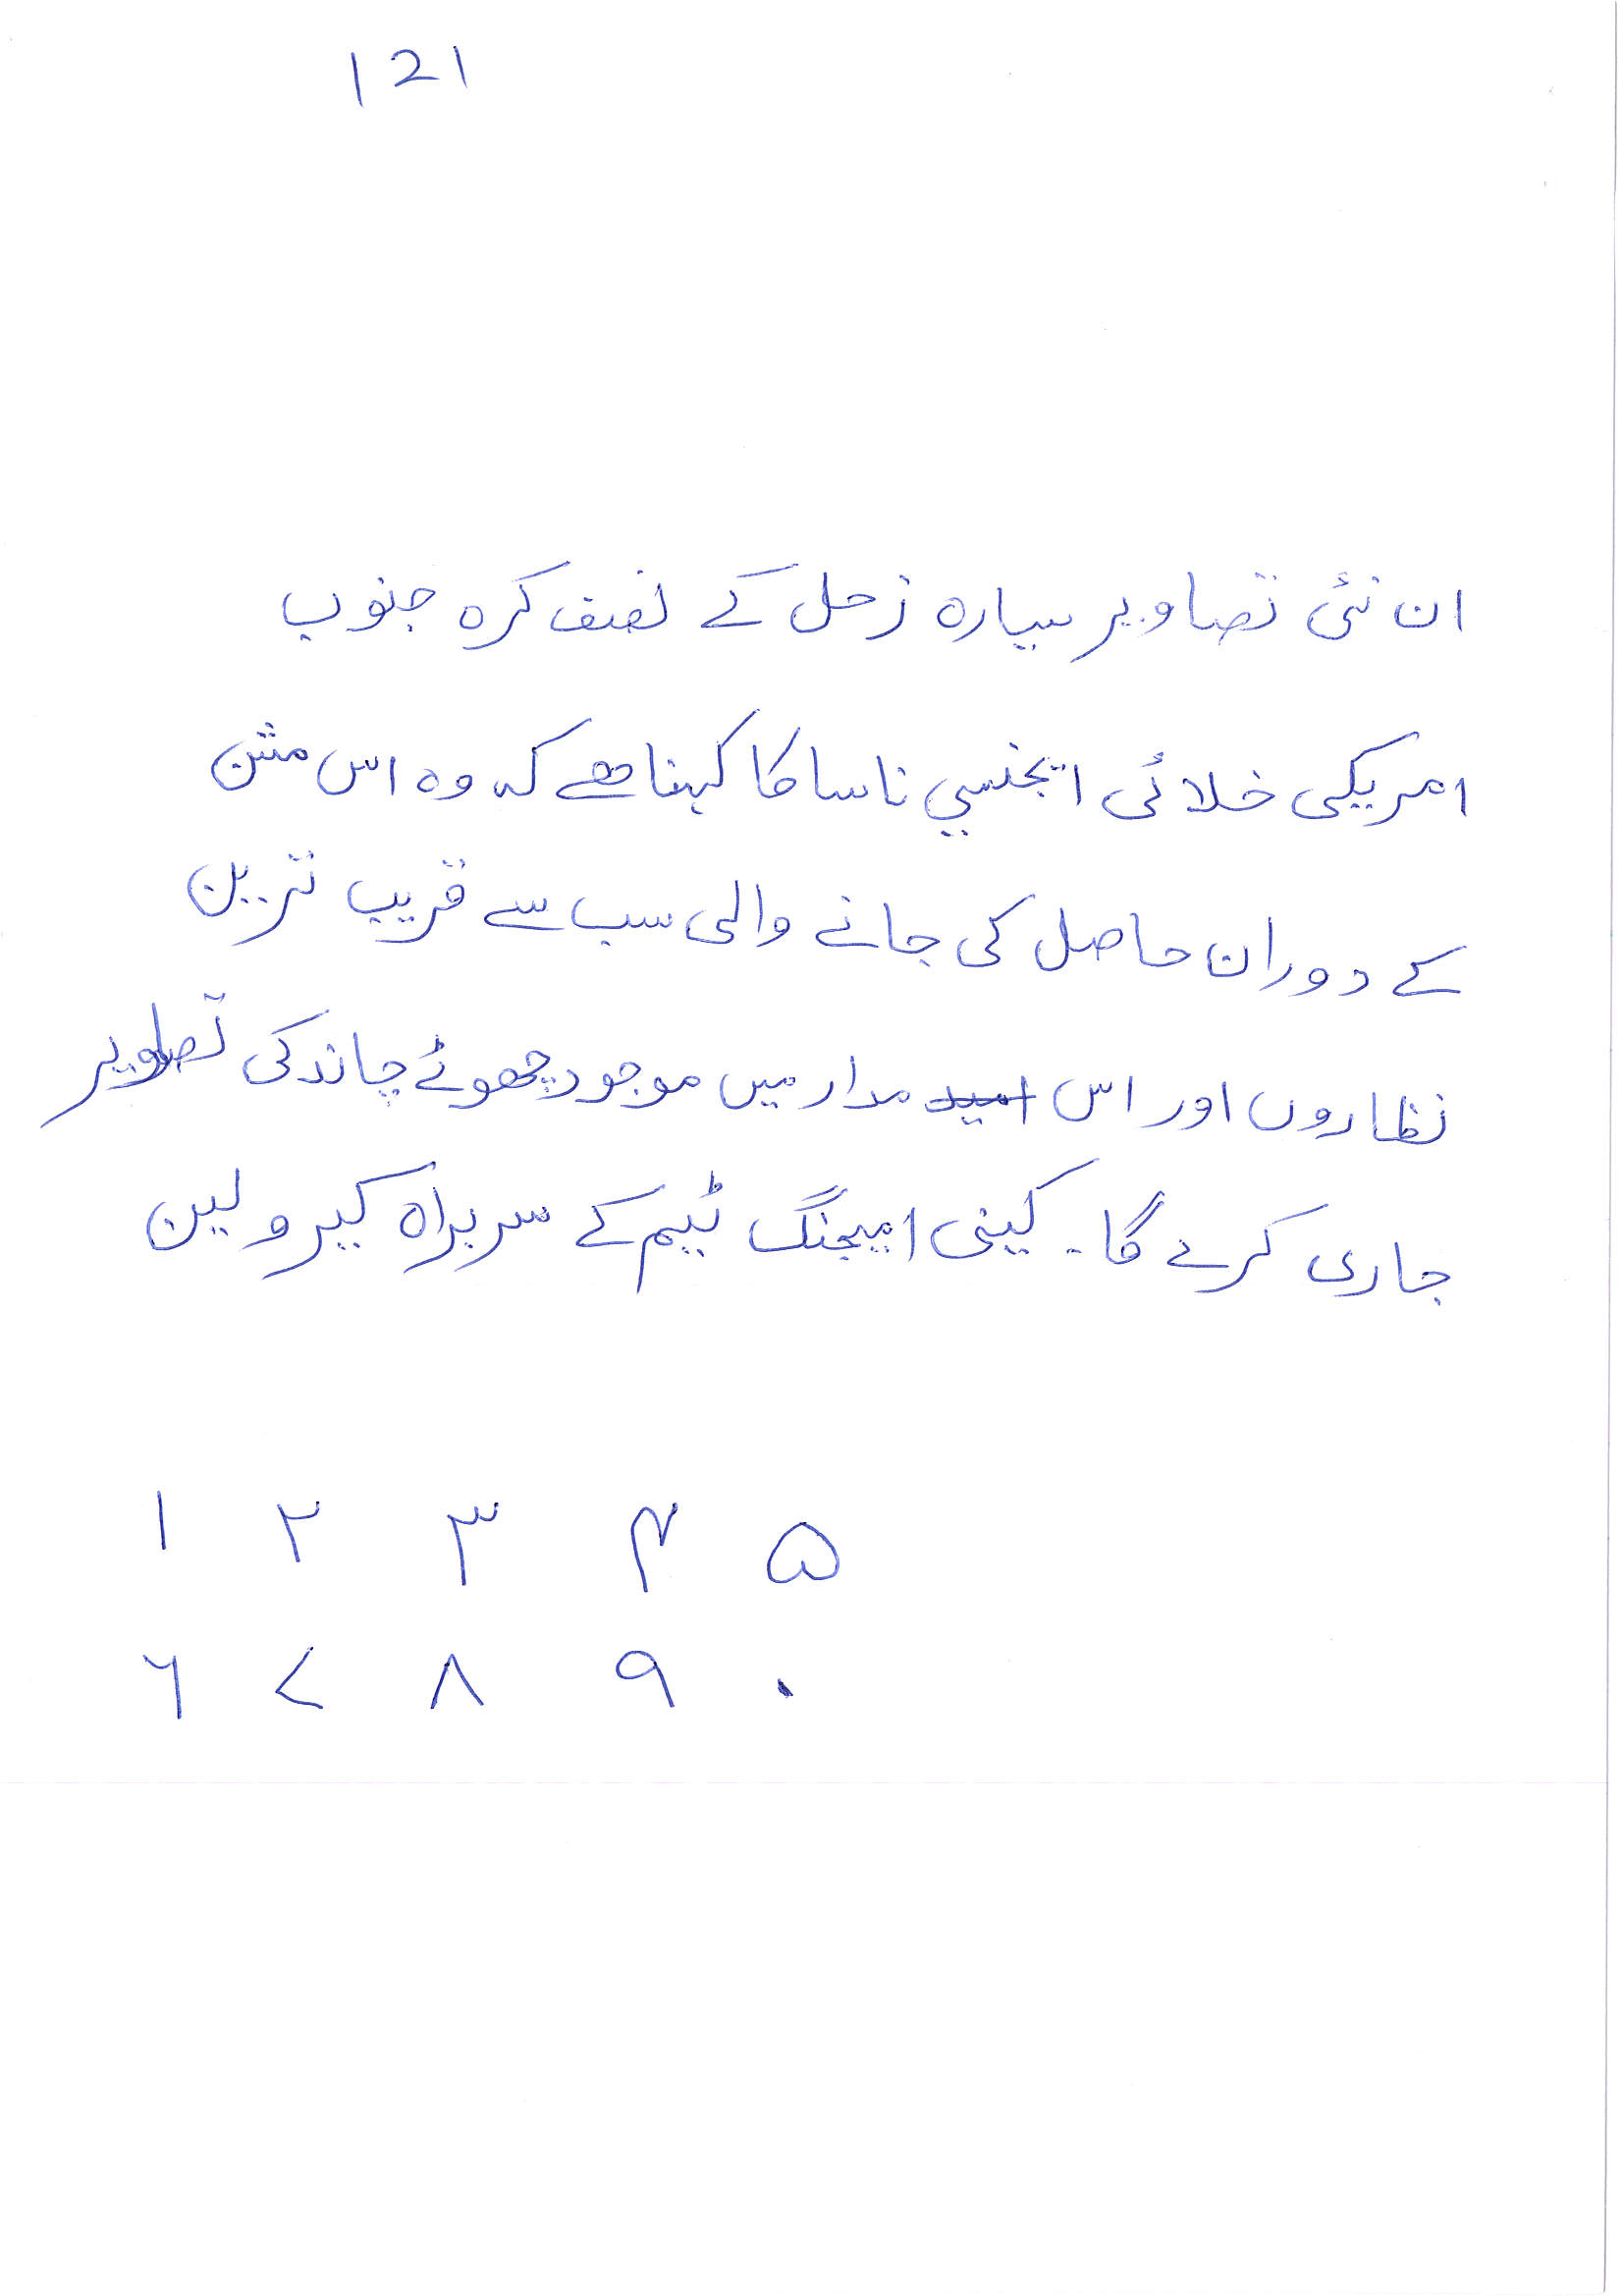 121
ان نئی تصاویر سیارہ زحل کے نصف کرہ جنوب
امریکی خلائی ایجنسی ناسا کا کہنا ھے کہ وہ اس مشن
کے دوران حاصل کی جانے والی سب سے قریب ترین
نظاروں اور اس امید مدار میں موجود چھوٹے چاند کی تصاویر
جاری کرے گا۔ کینی امیجنگ ٹیم کے سربراہ کیرولین
۱ ۲ ۳ ۴ ۵
۶ ۷ ۸ ۹ ۰